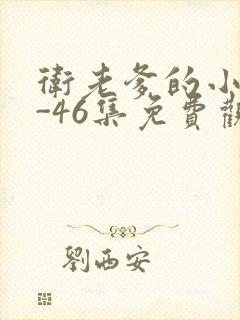 衛老爹的小
-46集免費觀
劉西安